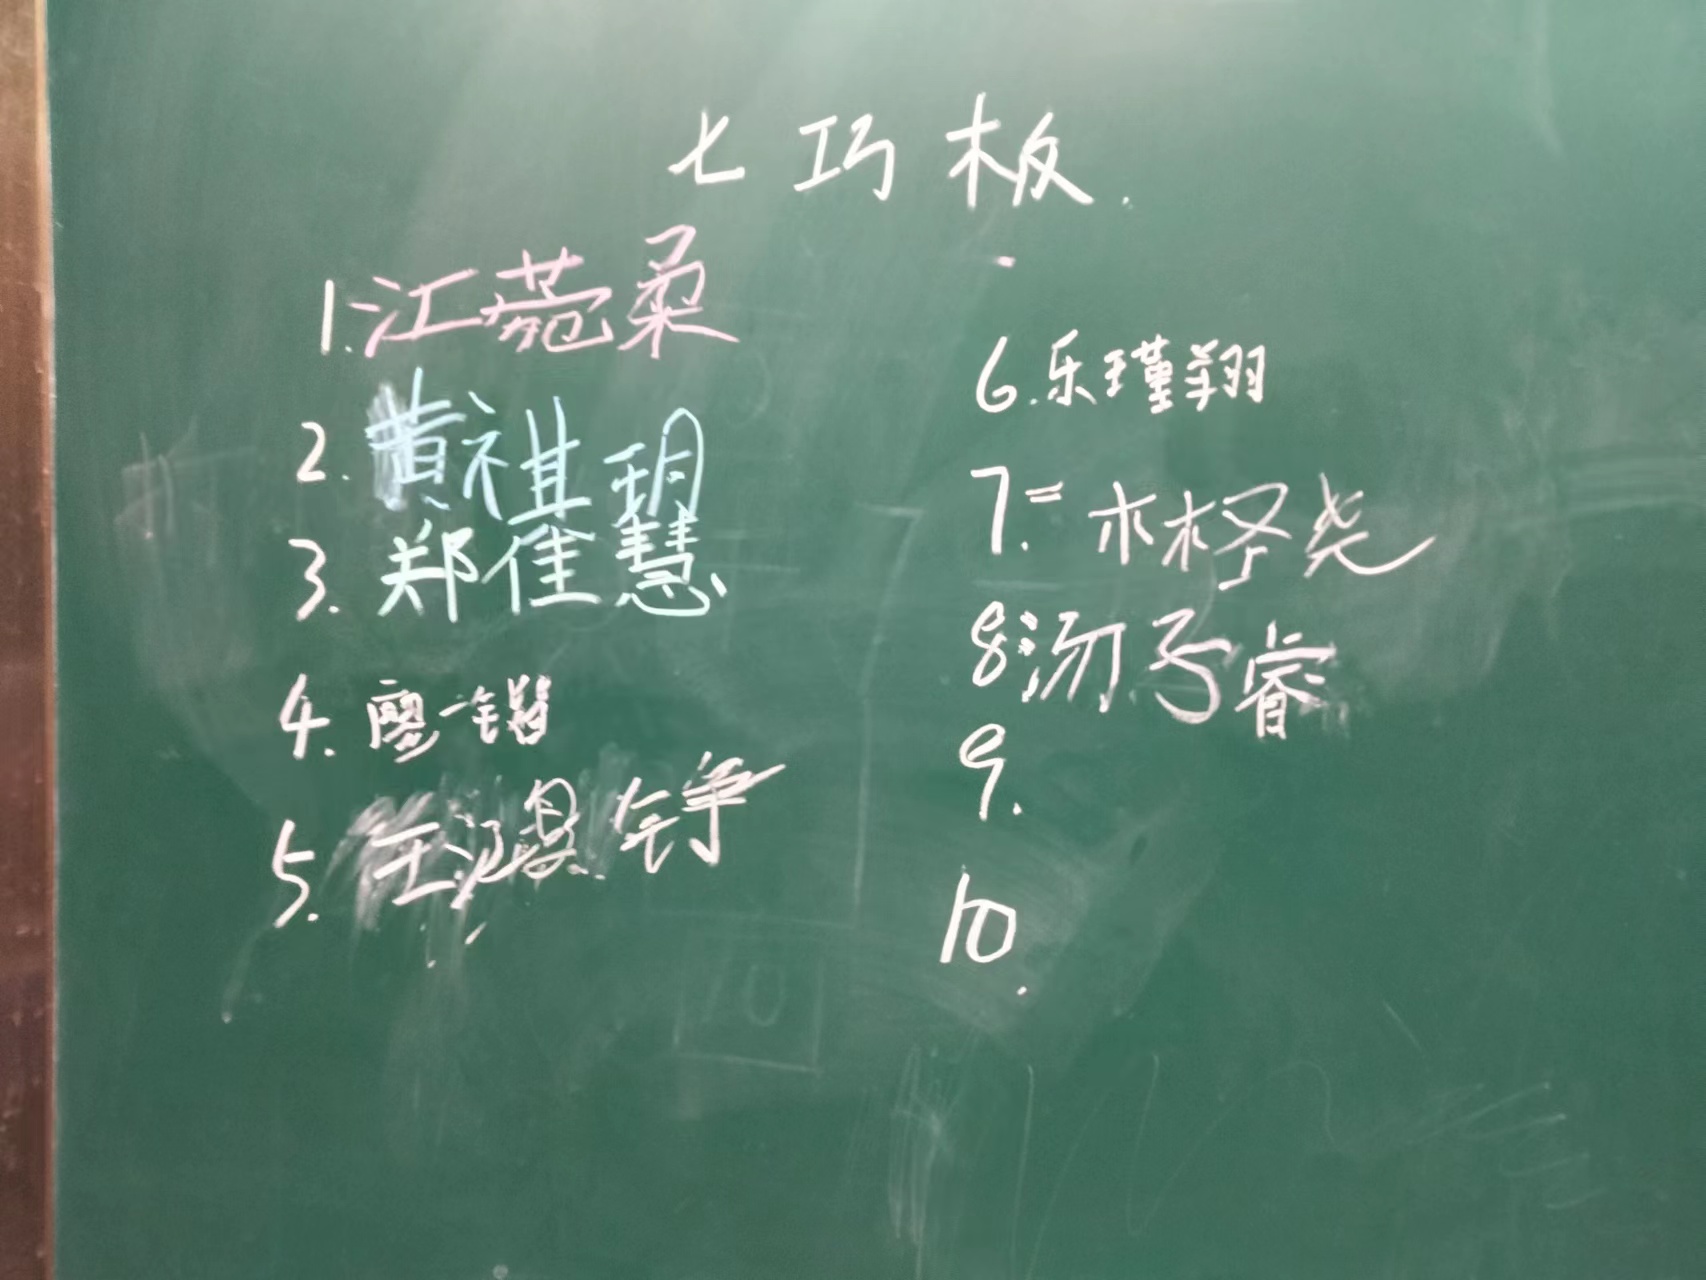 七巧板.
1.江菀柔
2.黄祺玥
3.郑佳慧
4.廖一锘
5.王江晨铮
6.乐瑾翔
7.
8.汤子睿
9.
10.